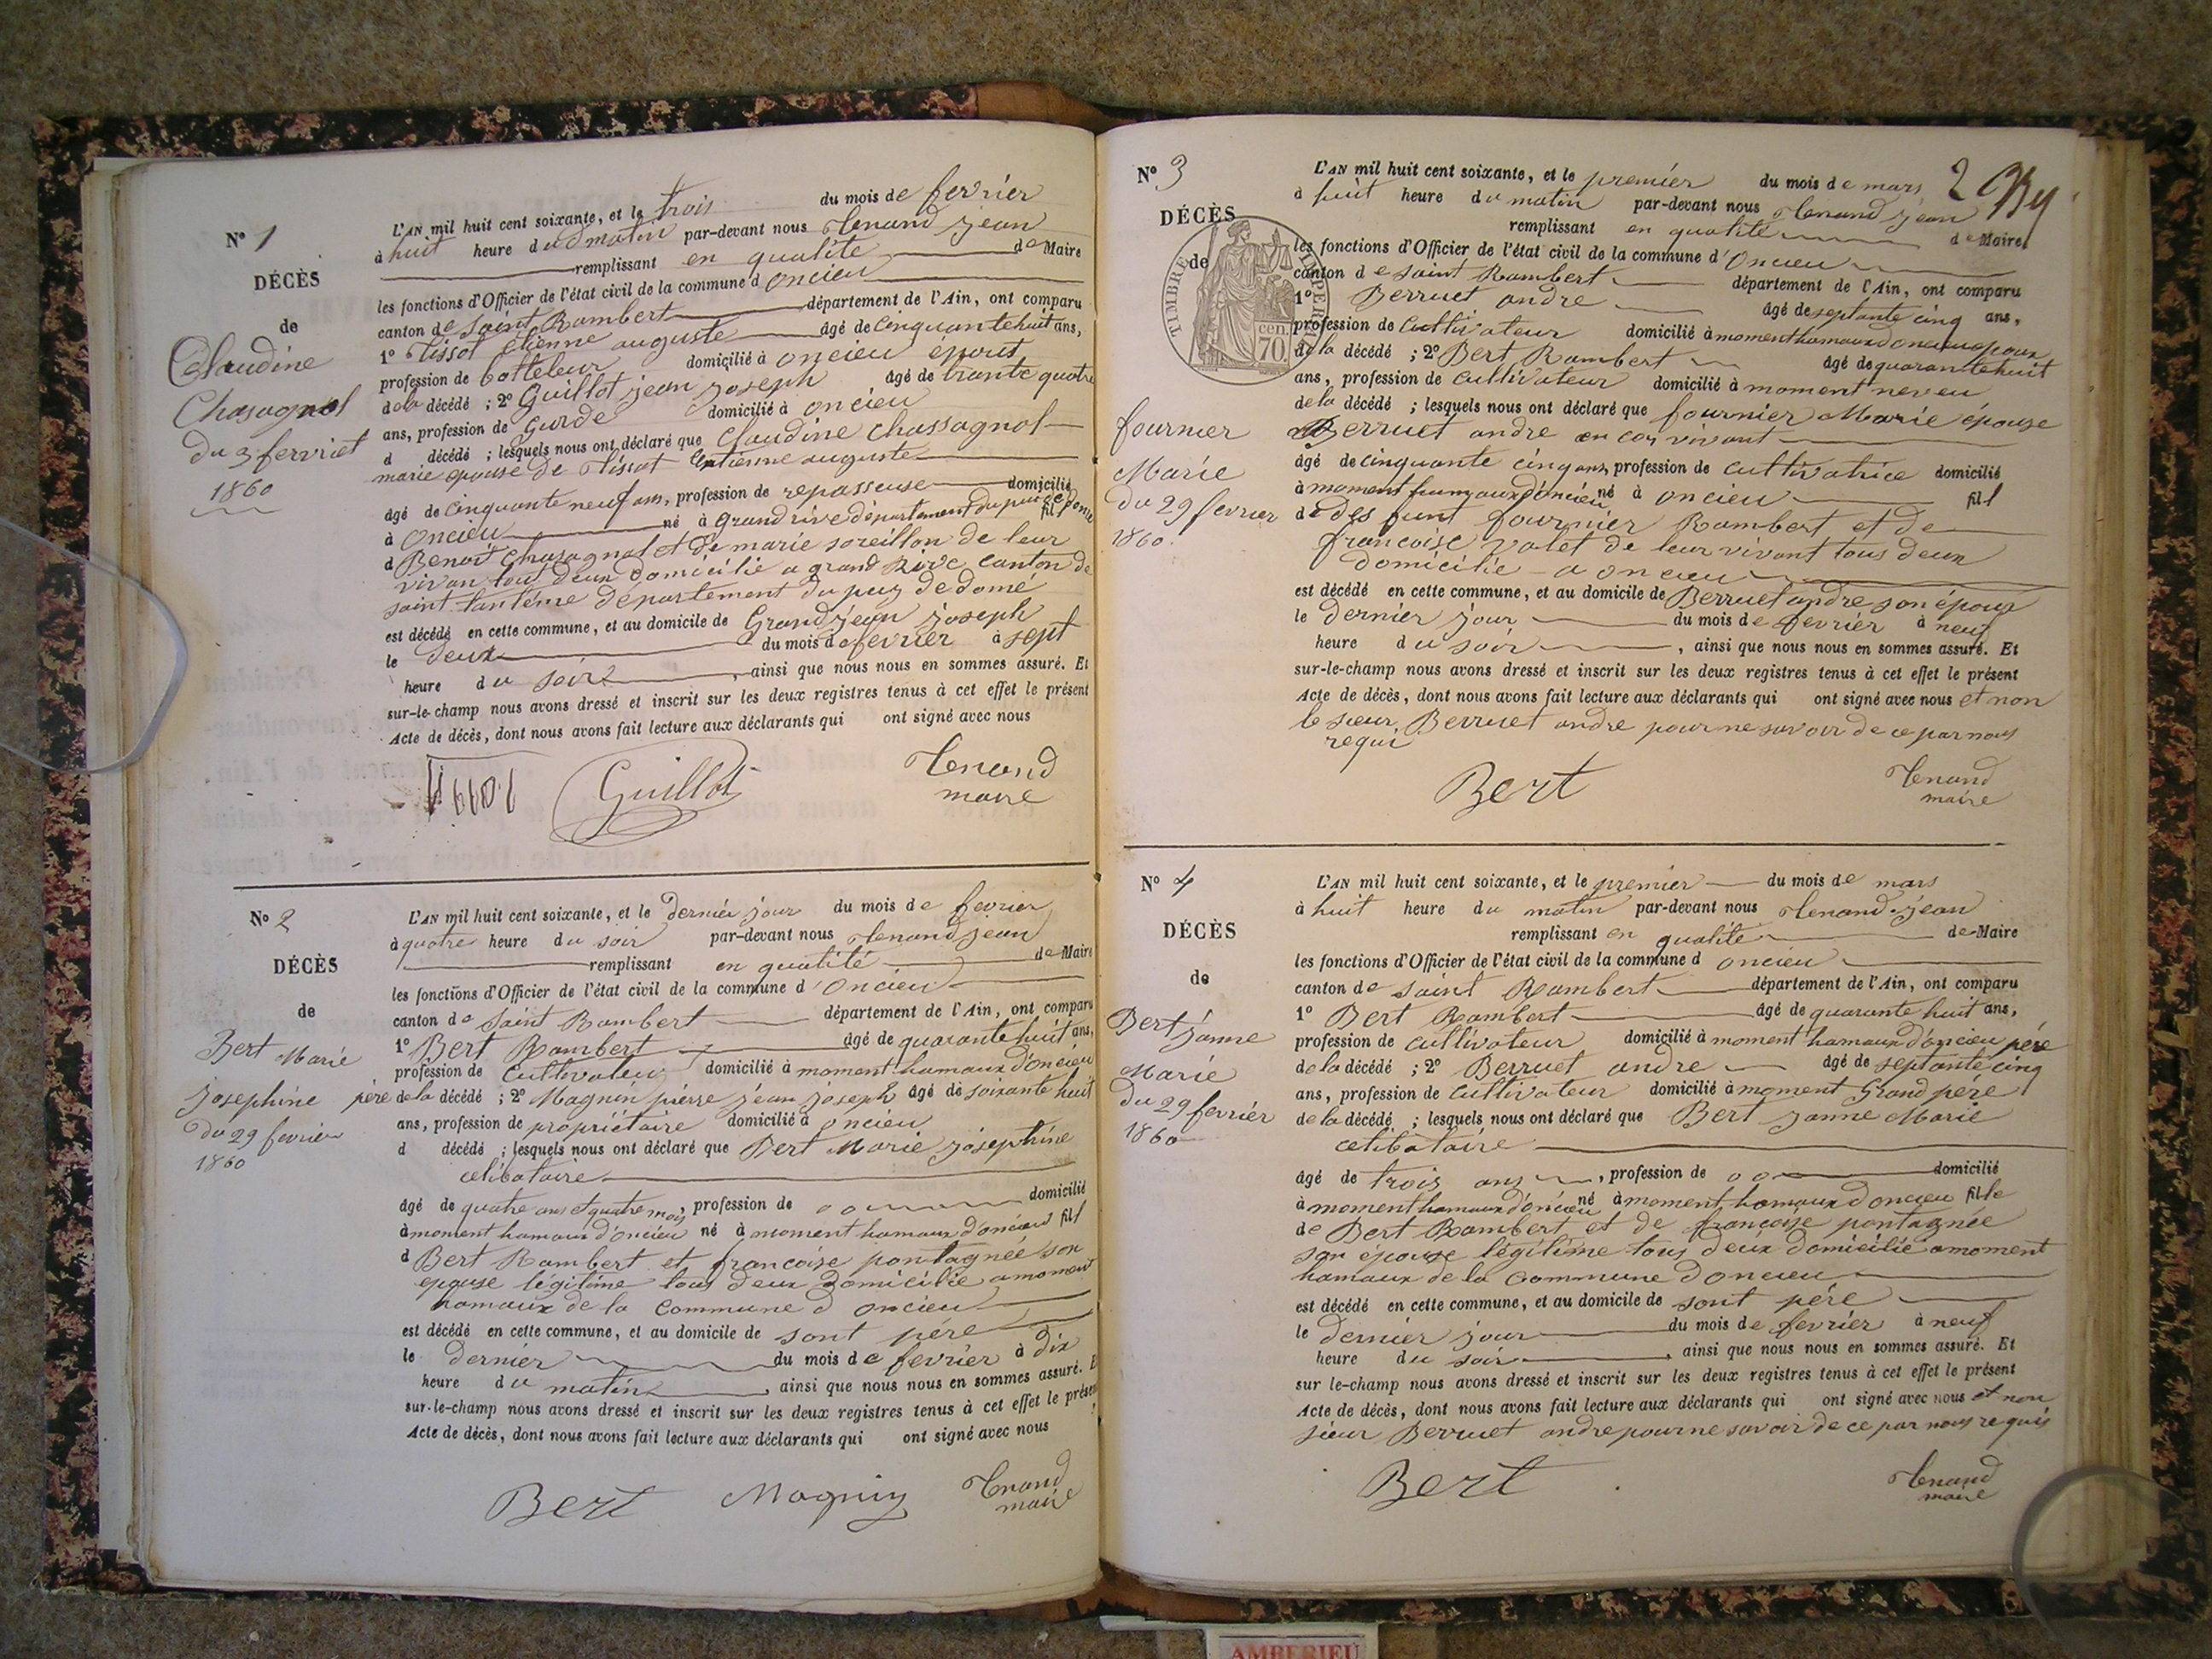 N° 1
DÉCÈS
de
Claudine
Chasagnol
du 3 fervriet
1860
L'AN mil huit cent soixante, et le trois du mois de fevrier
à huit heure du matin par-devant nous Tenand jean
remplissant en qualité de Maire
les fonctions d'Officier de l'état civil de la commune d oncieu
canton de saint Rambert département de l'Ain, ont comparu
1° Tissot étienne auguste âgé de cinquante huit ans,
profession de batteleur domicilié à oncieu épout
de la décédé ; 2° Guillot jean joseph âgé de trante quatre
ans, profession de Gurde domicilié à oncieu
d décédé ; lesquels nous ont déclaré que Claudine Chassagnol
marie epouse de Tissot Entienne auguste
âgé de cinquante neuf ans, profession de repasseuse domicilié
à oncieu né à grand rive département du puit de dome fil
d Benoit Chasagnol et de marie soreillon de leur
vivan tous deux domicilié a grand Rive canton de
saint tantéme département du puy de domé
est décédé en cette commune, et au domicile de Grand jean joseph
le deux du mois de fevrier à sept
heure du soir , ainsi que nous nous en sommes assuré. Et
sur-le-champ nous avons dressé et inscrit sur les deux registres tenus à cet effet le présent
Acte de décès, dont nous avons fait lecture aux déclarants qui ont signé avec nous
Guillot Tenand
maire
N° 2
DÉCÈS
de
Bert Marie
josephine
du 29 fevrier
1860
L'AN mil huit cent soixante, et le dernier jour du mois de fevrier
à quatre heure du soir par-devant nous Tenand jean
remplissant en qualité de Maire
les fonctions d'Officier de l'état civil de la commune d' oncieu
canton de Saint Rambert département de l'Ain, ont comparu
1° Bert Rambert âgé de quarante huit ans,
profession de cultivateur domicilié à moment hamaux d'oncieu
père de la décédé ; 2° Magnin pierre jean joseph âgé de soixante huit
ans, profession de propriétaire domicilié à oncieu
d décédé ; lesquels nous ont déclaré que Bert Marie josephine
celibataire
âgé de quatre ans et quatre mois, profession de oo domicilié
à moment hamaux d'oncieu né à moment hamaux d'oncieu fil
d Bert Rambert et francoise pontagnée son
epouse légitime tous deux domicilié a moment
hamaux de la commune d oncieu
est décédé en cette commune, et au domicile de sont père
le dernier du mois de fevrier à dix
heure du matin , ainsi que nous nous en sommes assuré. Et
sur-le-champ nous avons dressé et inscrit sur les deux registres tenus à cet effet le présent
Acte de décès, dont nous avons fait lecture aux déclarants qui ont signé avec nous
Bert Magnin Tenand
maire
2
N° 3
DÉCÈS
de
TIMBRE IMPERIAL
70 cen.
fournier
Marie
du 29 fevrier
1860
L'AN mil huit cent soixante, et le premier du mois de mars
à huit heure du matin par-devant nous Tenand jean
remplissant en qualité de Maire
les fonctions d'Officier de l'état civil de la commune d'oncieu
canton de saint Rambert département de l'Ain, ont comparu
1° Berruet andre âgé de septante cinq ans,
profession de Cultivateur domicilié à moment hamaux d oncieu epoux
de la décédé ; 2° Bert Rambert âgé de quarante huit
ans, profession de cultivateur domicilié à moment neveu
de la décédé ; lesquels nous ont déclaré que fournier Marie épouse
Berruet andre encor vivant
âgé de cinquante cinq ans, profession de cultivatrice domicilié
à moment hamaux d'oncieu né à oncieu fill
de des funt fournier Rambert et de
francoise valet de leur vivant tous deux
domicilié a oncieu
est décédé en cette commune, et au domicile de Berruet andre son époux
le dernier jour du mois de fevrier à neuf
heure du soir , ainsi que nous nous en sommes assuré. Et
sur-le-champ nous avons dressé et inscrit sur les deux registres tenus à cet effet le présent
Acte de décès, dont nous avons fait lecture aux déclarants qui ont signé avec nous et non
le sieur Berruet andre pour ne savoir de ce par nous
requi
Bert Tenand
maire
N° 4
DÉCÈS
de
Bert janne
Marie
du 29 fevrier
1860
L'AN mil huit cent soixante, et le premier du mois de mars
à huit heure du matin par-devant nous Tenand jean
remplissant en qualite de Maire
les fonctions d'Officier de l'état civil de la commune d oncieu
canton de saint Rambert département de l'Ain, ont comparu
1° Bert Rambert âgé de quarante huit ans,
profession de cultivateur domicilié à moment hamaux d'oncieu père
de la décédé ; 2° Berruet andre âgé de septante cinq
ans, profession de cultivateur domicilié à moment Grand père
de la décédé ; lesquels nous ont déclaré que Bert janne Marie
celibataire
âgé de trois ans , profession de oo domicilié
à moment hamaux d'oncieu né à moment hamaux d oncieu fille
de Bert Rambert et de francoise pontagnée
son épouse légitime tous deux domicilié a moment
hamaux de la commune d oncieu
est décédé en cette commune, et au domicile de sont père
le dernier jour du mois de fevrier à neuf
heure du soir , ainsi que nous nous en sommes assuré. Et
sur le-champ nous avons dressé et inscrit sur les deux registres tenus à cet effet le présent
Acte de décès, dont nous avons fait lecture aux déclarants qui ont signé avec nous et non
sieur Berruet andre pour ne savoir de ce par nous requis
Bert Tenand
maire
AMBERIEU